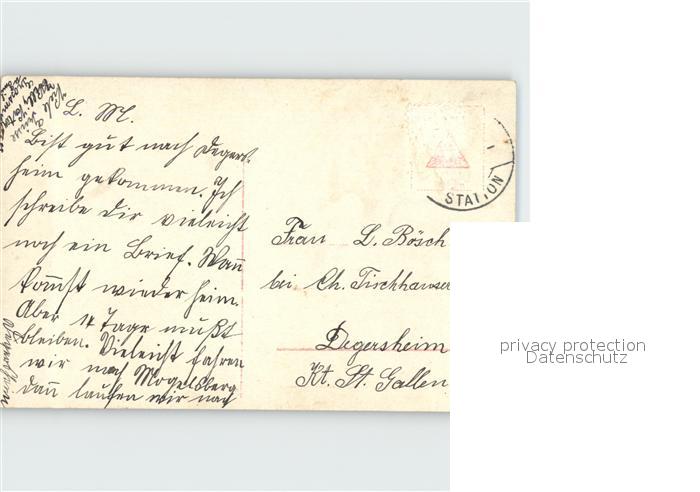 L. M.
Bist gut nach Degers-
heim gekommen. Ich
schreibe dir vieleicht
noch ein Brief. Wann
kommst wieder heim.
Aber 14 Tage mußt
bleiben. Vieleicht fahren
wir nach Mogelsberg
dann laufen wir nach
STATION
Frau L. Bösch
bei Ch. Tischhauser
Degersheim
Kt. St. Gallen
privacy protection
Datenschutz